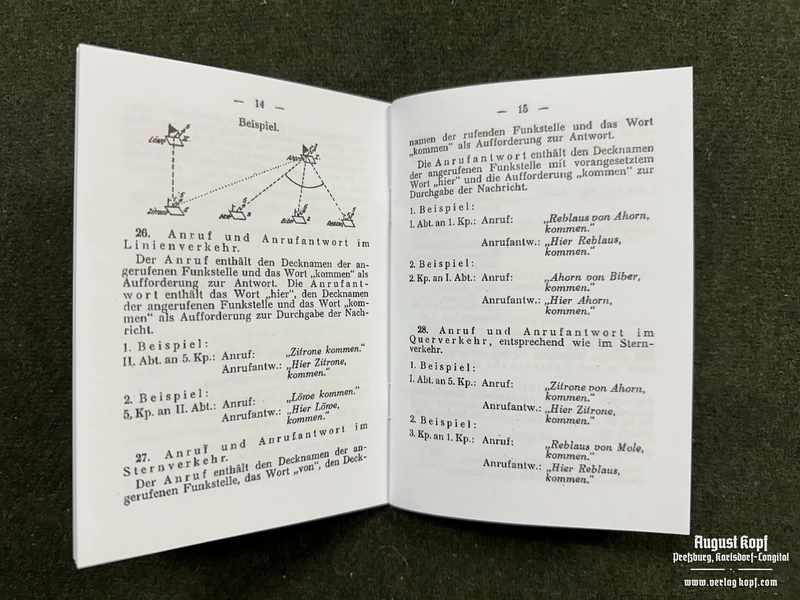 — 14 —
Beispiel.
Löwe
Ahorn
Zitrone
Mole
Biber
26. Anruf und Anrufantwort im
Linienverkehr.
Der Anruf enthält den Decknamen der an-
gerufenen Funkstelle und das Wort „kommen“ als
Aufforderung zur Antwort. Die Anrufant-
wort enthält das Wort „hier“, den Decknamen
der angerufenen Funkstelle und das Wort „kom-
men“ als Aufforderung zur Durchgabe der Nach-
richt.
1. Beispiel:
II. Abt. an 5. Kp.: Anruf: „Zitrone kommen.“
Anrufantw.: „Hier Zitrone,
kommen.“
2. Beispiel:
5. Kp. an II. Abt.: Anruf: „Löwe kommen.“
Anrufantw.: „Hier Löwe,
kommen.“
27. Anruf und Anrufantwort im
Sternverkehr.
Der Anruf enthält den Decknamen der an-
gerufenen Funkstelle, das Wort „von“, den Deck-
— 15 —
namen der rufenden Funkstelle und das Wort
„kommen“ als Aufforderung zur Antwort.
Die Anrufantwort enthält den Decknamen
der angerufenen Funkstelle mit vorangesetztem
Wort „hier“ und die Aufforderung „kommen“ zur
Durchgabe der Nachricht.
1. Beispiel:
I. Abt. an 1. Kp.: Anruf: „Reblaus von Ahorn,
kommen.“
Anrufantw.: „Hier Reblaus,
kommen.“
2. Beispiel:
2. Kp. an I. Abt.: Anruf: „Ahorn von Biber,
kommen.“
Anrufantw.: „Hier Ahorn,
kommen.“
28. Anruf und Anrufantwort im
Querverkehr, entsprechend wie im Stern-
verkehr.
1. Beispiel:
I. Abt. an 5. Kp.: Anruf: „Zitrone von Ahorn,
kommen.“
Anrufantw.: „Hier Zitrone,
kommen.“
2. Beispiel:
3. Kp. an 1. Kp.: Anruf: „Reblaus von Mole,
kommen.“
Anrufantw.: „Hier Reblaus,
kommen.“
August Kopf
Preßburg, Karlsdorf-Longital
www.verlagkopf.com